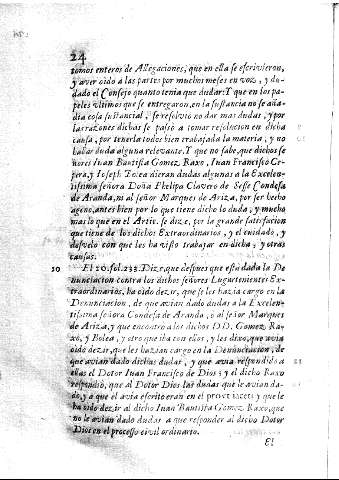 24
tomos enteros de Allegaciones, que en ella se escrivieron,
y aver oido a las partes por muchos meses en voz, y du-
dado el Consejo quanto tenia que dudar: Y que en los pa-
peles vltimos que se entregaron, en la sustancia no se aña-
dia cosa sustancial, se resolvió no dar mas dudas, y por
las razones dichas se passò a tomar resolucion en dicha
causa, por tenerla todos bien trabajada la materia, y no
hallar duda alguna relevante. Y que no sabe, que dichos se
ñores Iuan Bautista Gomez Raxo, Iuan Francisco Ce-
pera, y Ioseph Bolea dieran dudas algunas a la Excelen-
tissima señora Doña Phelipa Clavero de Sesse Condesa
de Aranda, ni al señor Marques de Ariza, por ser hecho
ageno, antes bien por lo que tiene dicho lo duda, y mucho
mas lo que en el Artic. se dize, por la grande satisfacion
que tiene de los dichos Extraordinarios, y el cuidado, y
desvelo con que les ha visto trabajar en dicha, y otras
causas.
20 El 20. fol. 233. Dize, que despues que està dada la De
nunciacion contra los dichos señores Lugartenientes Ex-
traordinarios, ha oido dezir, que se les hazia cargo en la
Denunciacion, de que avian dado dudas a la Excelen-
tissima señora Condesa de Aranda, o al señor Marques
de Ariza, y que encontrò a los dichos DD. Gomez Ra-
xo, y Bolea, y otro que iba con ellos, y les dixo, que avia
oido dezir, que les hazian cargo en la Denunciacion, de
que avian dado dichas dudas, y que avia respondido a
ellas el Dotor Iuan Francisco de Dios; y el dicho Raxo
respondiò, que al Dotor Dios las dudas que le avian da-
do, y a que èl avia escrito eran en el
ha oido dezir al dicho Iuan Bautista Gomez Raxo, que
no le avian dado dudas a que responder al dicho Dotor
Dios en el processo civil ordinario.
El